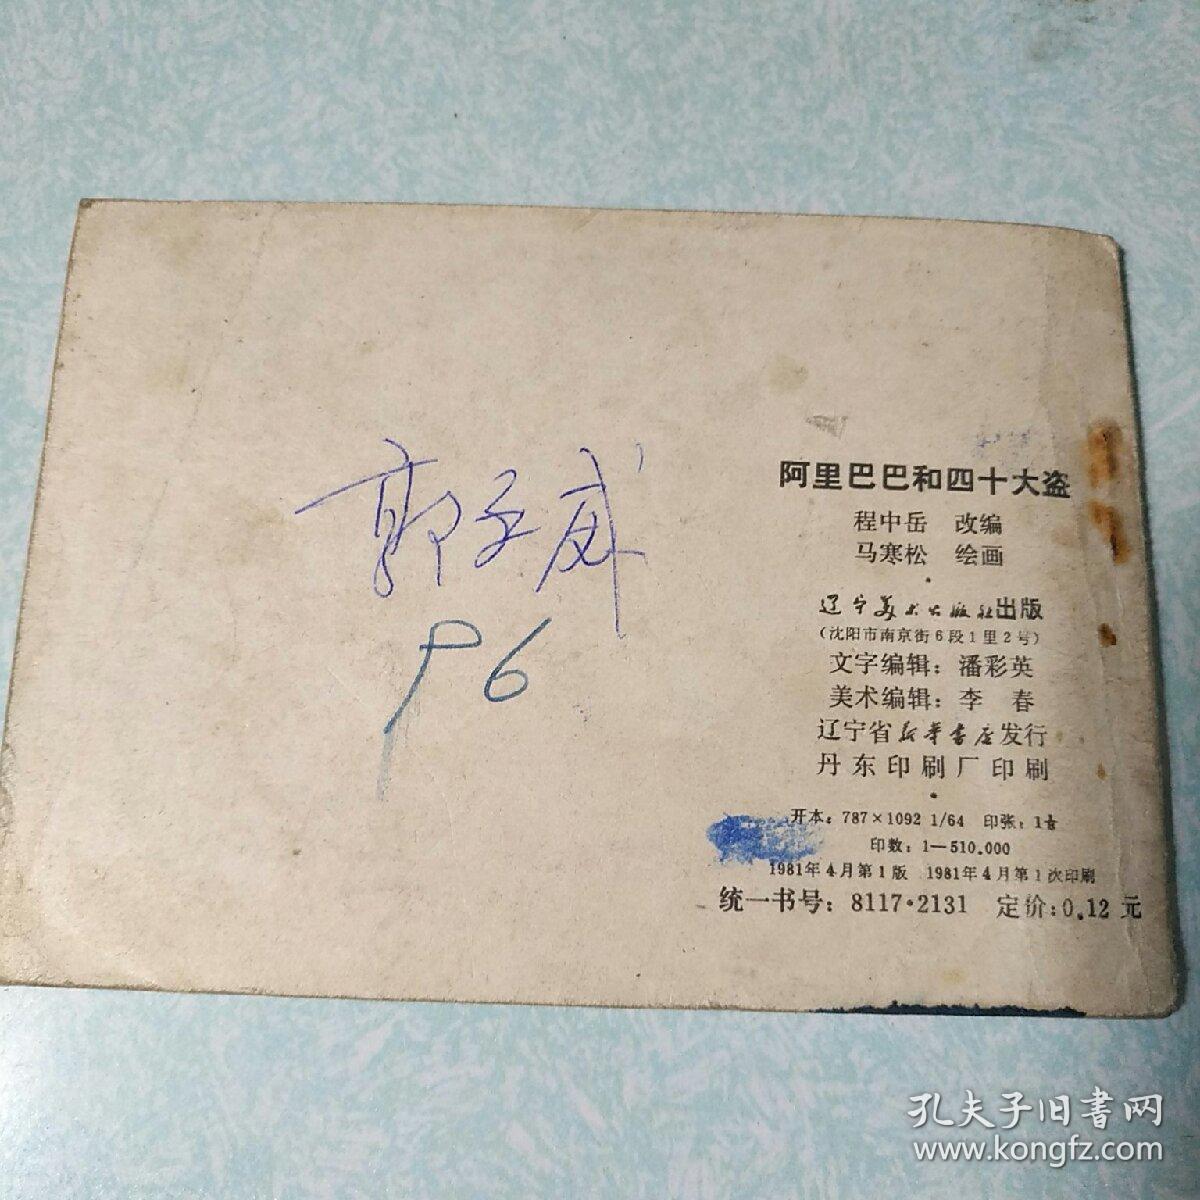 郭玉威
96
阿里巴巴和四十大盗
程中岳 改编
马寒松 绘画
辽宁美术出版社出版
(沈阳市南京街6段1里2号)
文字编辑：潘彩英
美术编辑：李 春
辽宁省新华书店发行
丹东印刷厂印刷
开本：787×1092 1/64 印张：1
印数：1—510,000
1981年4月第1版 1981年4月第1次印刷
统一书号：8117·2131 定价：0.12元
孔夫子旧书网
www.kongfz.com